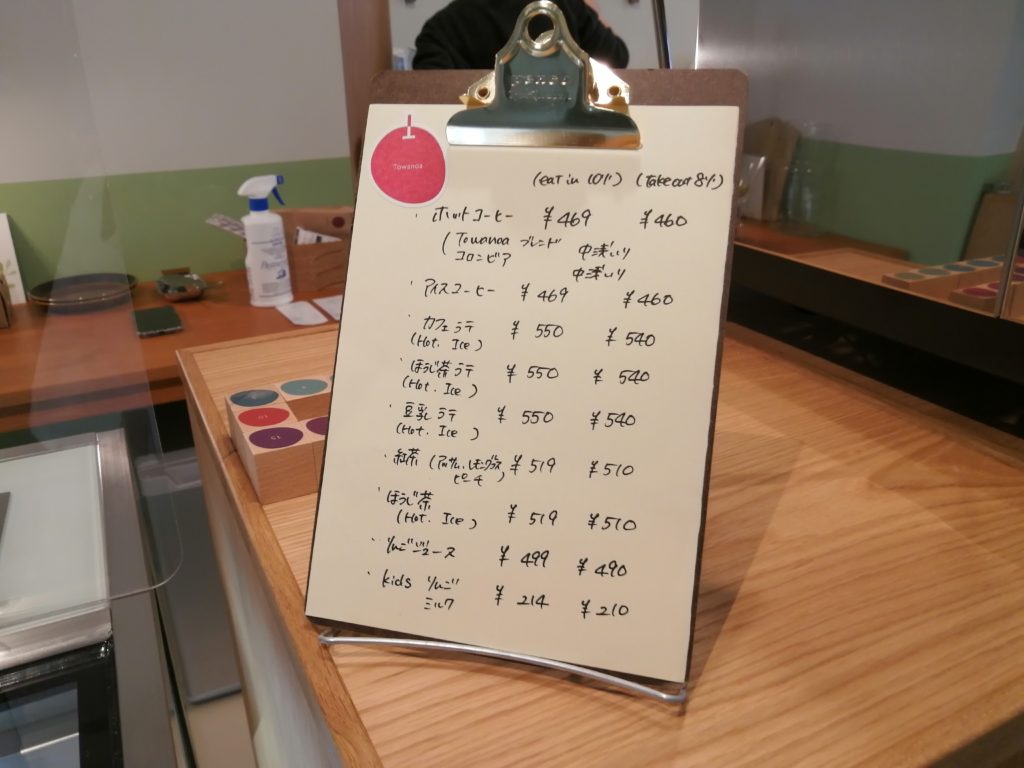 Towanoa
(eat in 10%) (take out 8%)
・ホットコーヒー ¥469 ¥460
(Towanoa ブレンド 中浅いり
コロンビア 中浅いり
・アイスコーヒー ¥469 ¥460
・カフェラテ ¥550 ¥540
(Hot. Ice)
・ほうじ茶ラテ ¥550 ¥540
(Hot. Ice)
・豆乳ラテ ¥550 ¥540
(Hot. Ice)
・紅茶 (アッサム、レモングラス ¥519 ¥510
ピーチ)
・ほうじ茶 ¥519 ¥510
(Hot. Ice)
・りんごジュース ¥499 ¥490
・kids りんご ¥214 ¥210
ミルク